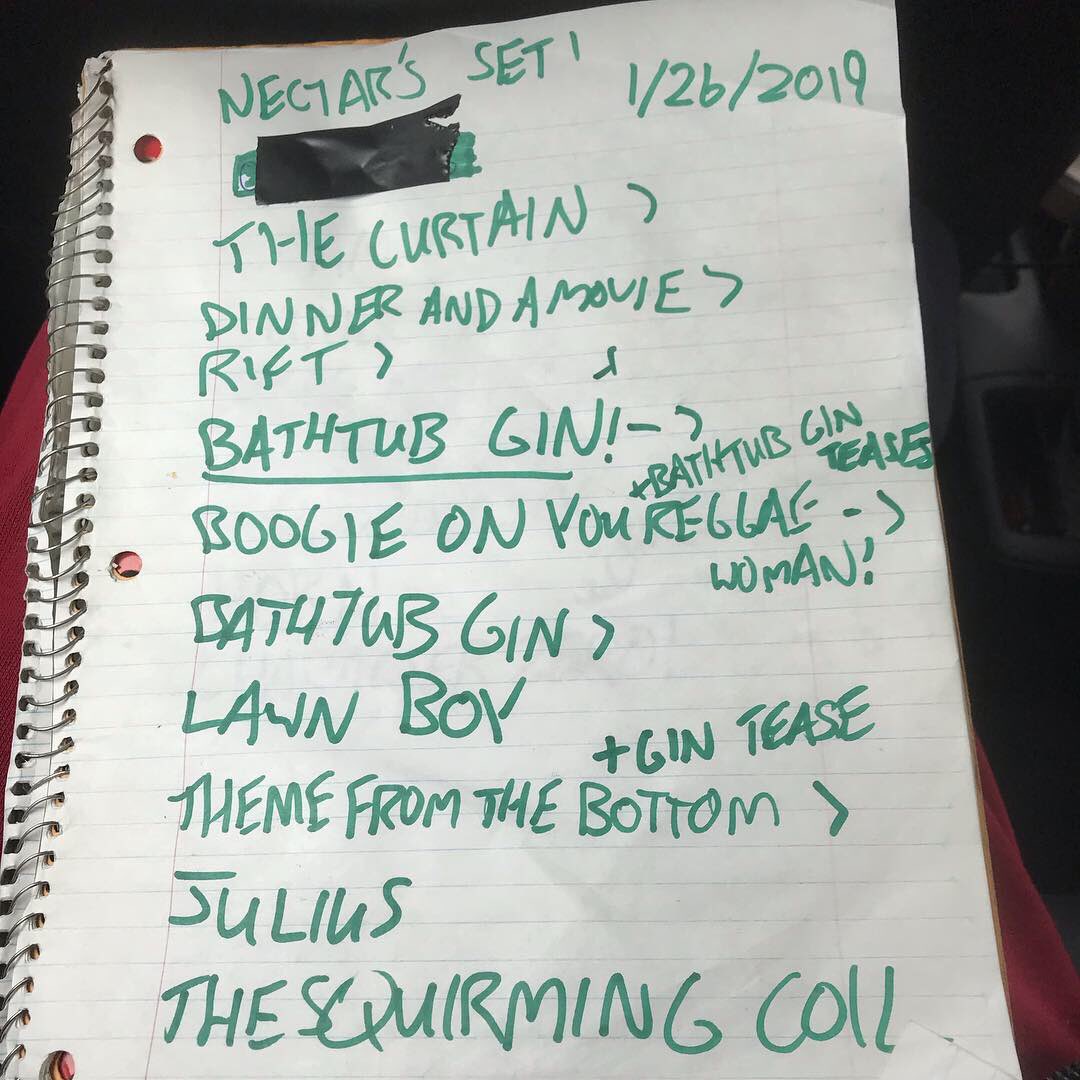 NECTAR'S SET 1 1/26/2019
THE CURTAIN >
DINNER AND A MOVIE >
RIFT >
BATHTUB GIN! - >
+BATHTUB GIN TEASES
BOOGIE ON YOU REGGAE - >
WOMAN!
BATHTUB GIN >
LAWN BOY
+GIN TEASE
THEME FROM THE BOTTOM >
JULIUS
THE SQUIRMING COIL